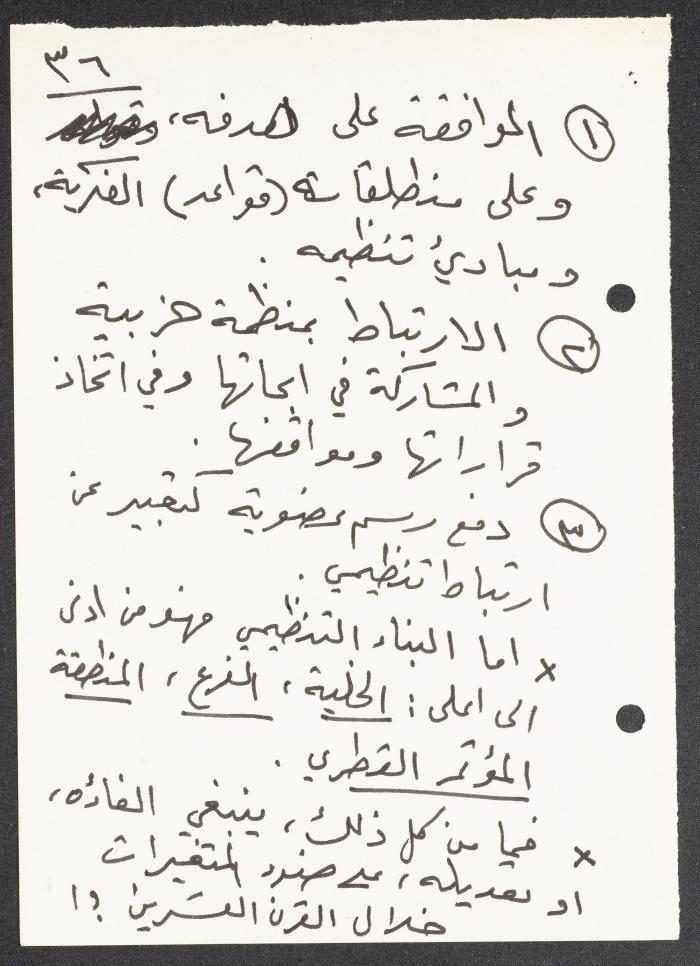 ٣٦
① الموافقة على هدفه،
وعلى منطلقاته (قواعد) الفكرية،
ومبادئ تنظيمه .
② الارتباط بمنظمة حزبية
والمشاركة في ابحاثها وفي اتخاذ
قراراتها ومواقفها .
③ دفع رسم عضوية كتعبير عن
ارتباط تنظيمي .
× اما البناء التنظيمي فهو من ادنى
الى اعلى : الخلية ، الفرع ، المنطقة
المؤتمر القطري .
× فما من كل ذلك، ينبغي الغاؤه،
او تعديله، على ضوء المتغيرات
خلال القرن العشرين ؟!